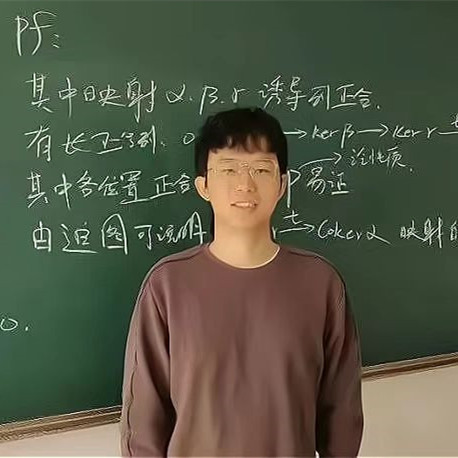 Pf:
其中映射α.β.γ诱导列正合.
有长正合列. 0 → kerβ → kerγ
泛性质.
其中各位置正合 易证
由追图可说明 → Cokerα 映射的
0.